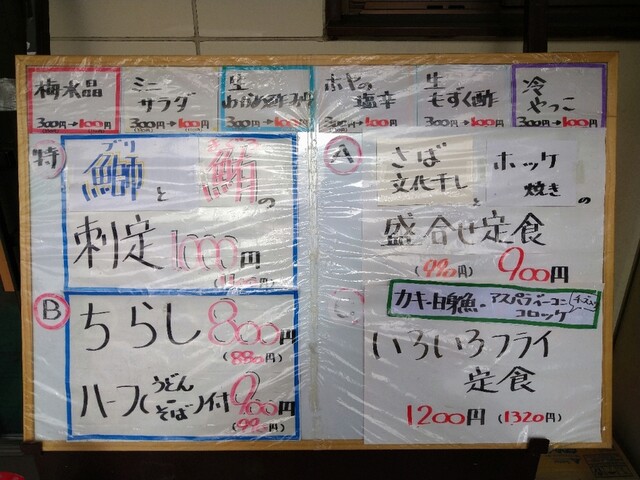 梅水晶
300円→100円
ミニ
サラダ
300円→100円
生
300円→100円
ホヤの
塩辛
300円→100円
生
もずく酢
300円→100円
冷
やっこ
300円→100円
特
ブリ
鰤と
鮪の
刺定1000円
(1100円)
B
ちらし800円
(880円)
ハーフ(うどん
そば)付900円
(990円)
A
さば
文化干しと
ホッケ
焼きの
盛合せ定食
(990円) 900円
C
カキ・白身魚・アスパラベーコン
コロッケ
いろいろフライ
定食
1200円 (1320円)